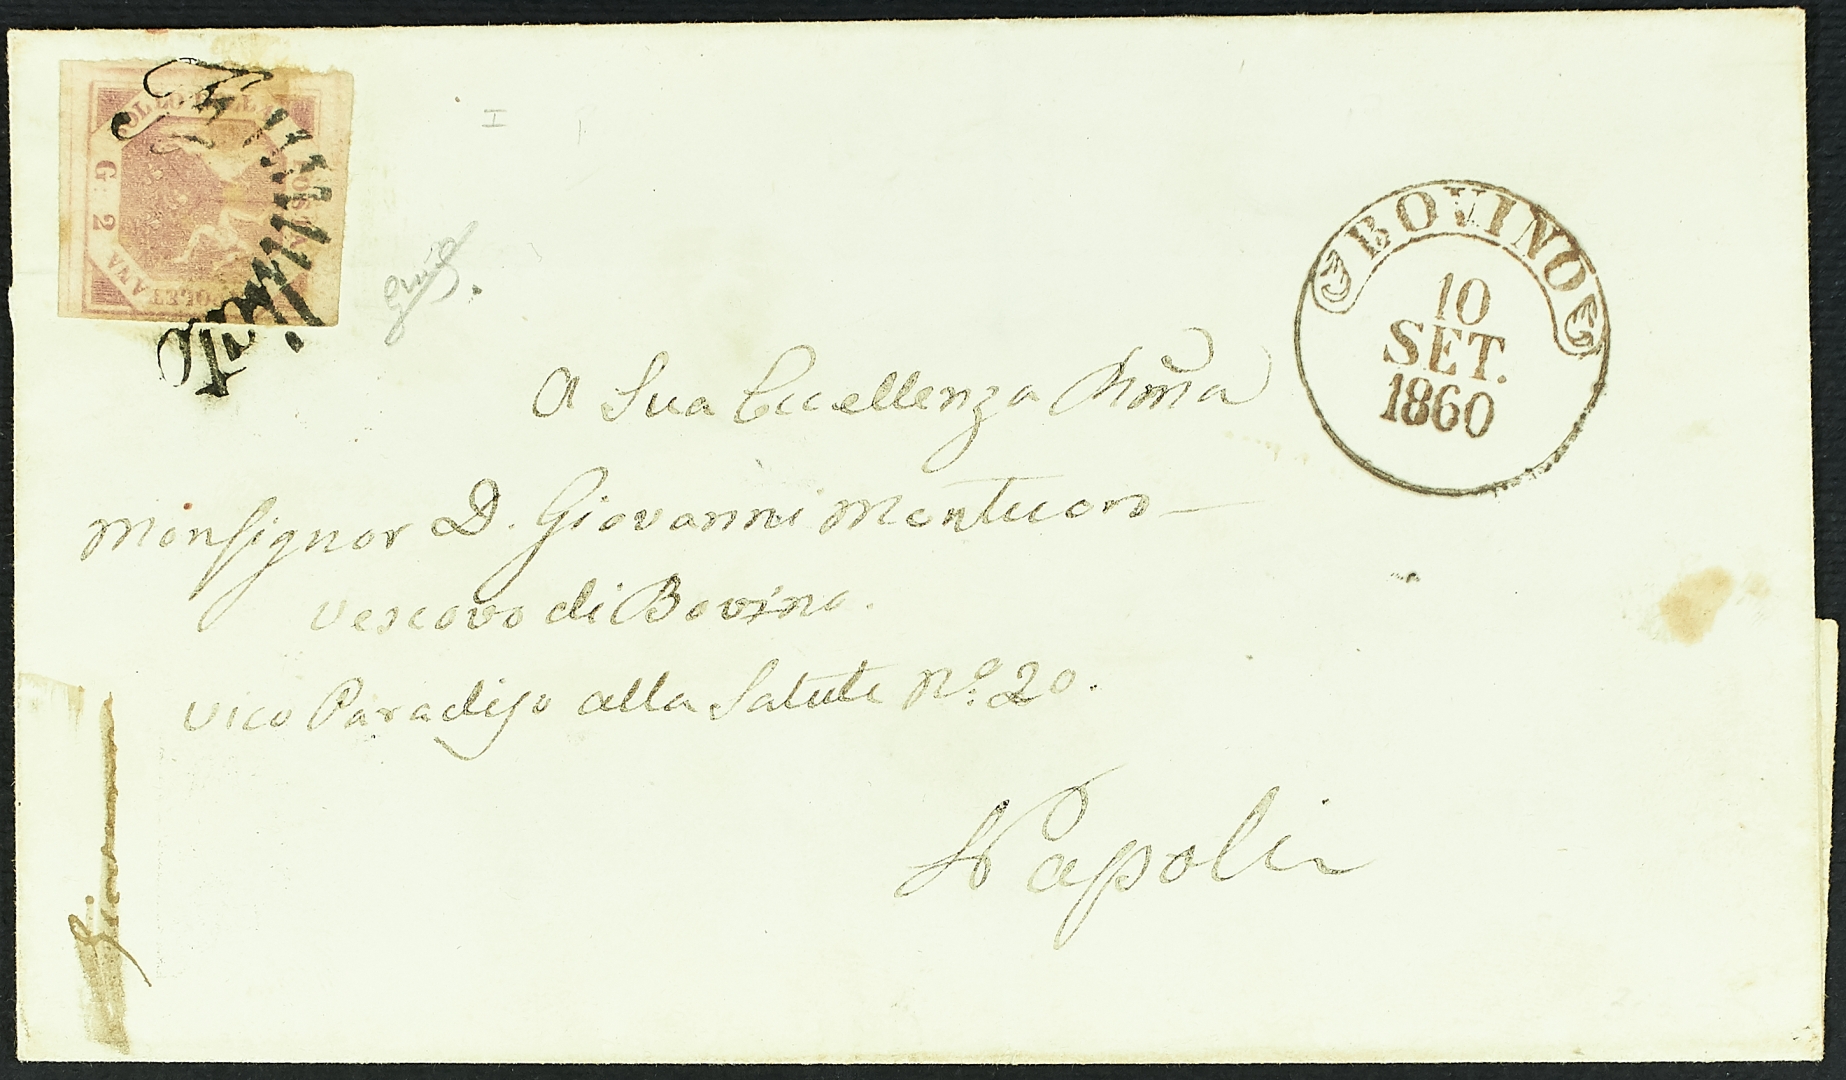 BOLLO DELLA
POSTA
NAPOLETANA
G. 2
Annullato
BOVINO
10
SET.
1860
A Sua Eccellenza Rm̃a
Monsignor D. Giovanni Montuoro
Vescovo di Bovino.
Vico Paradiso alla Salute Nº. 20.
Napoli